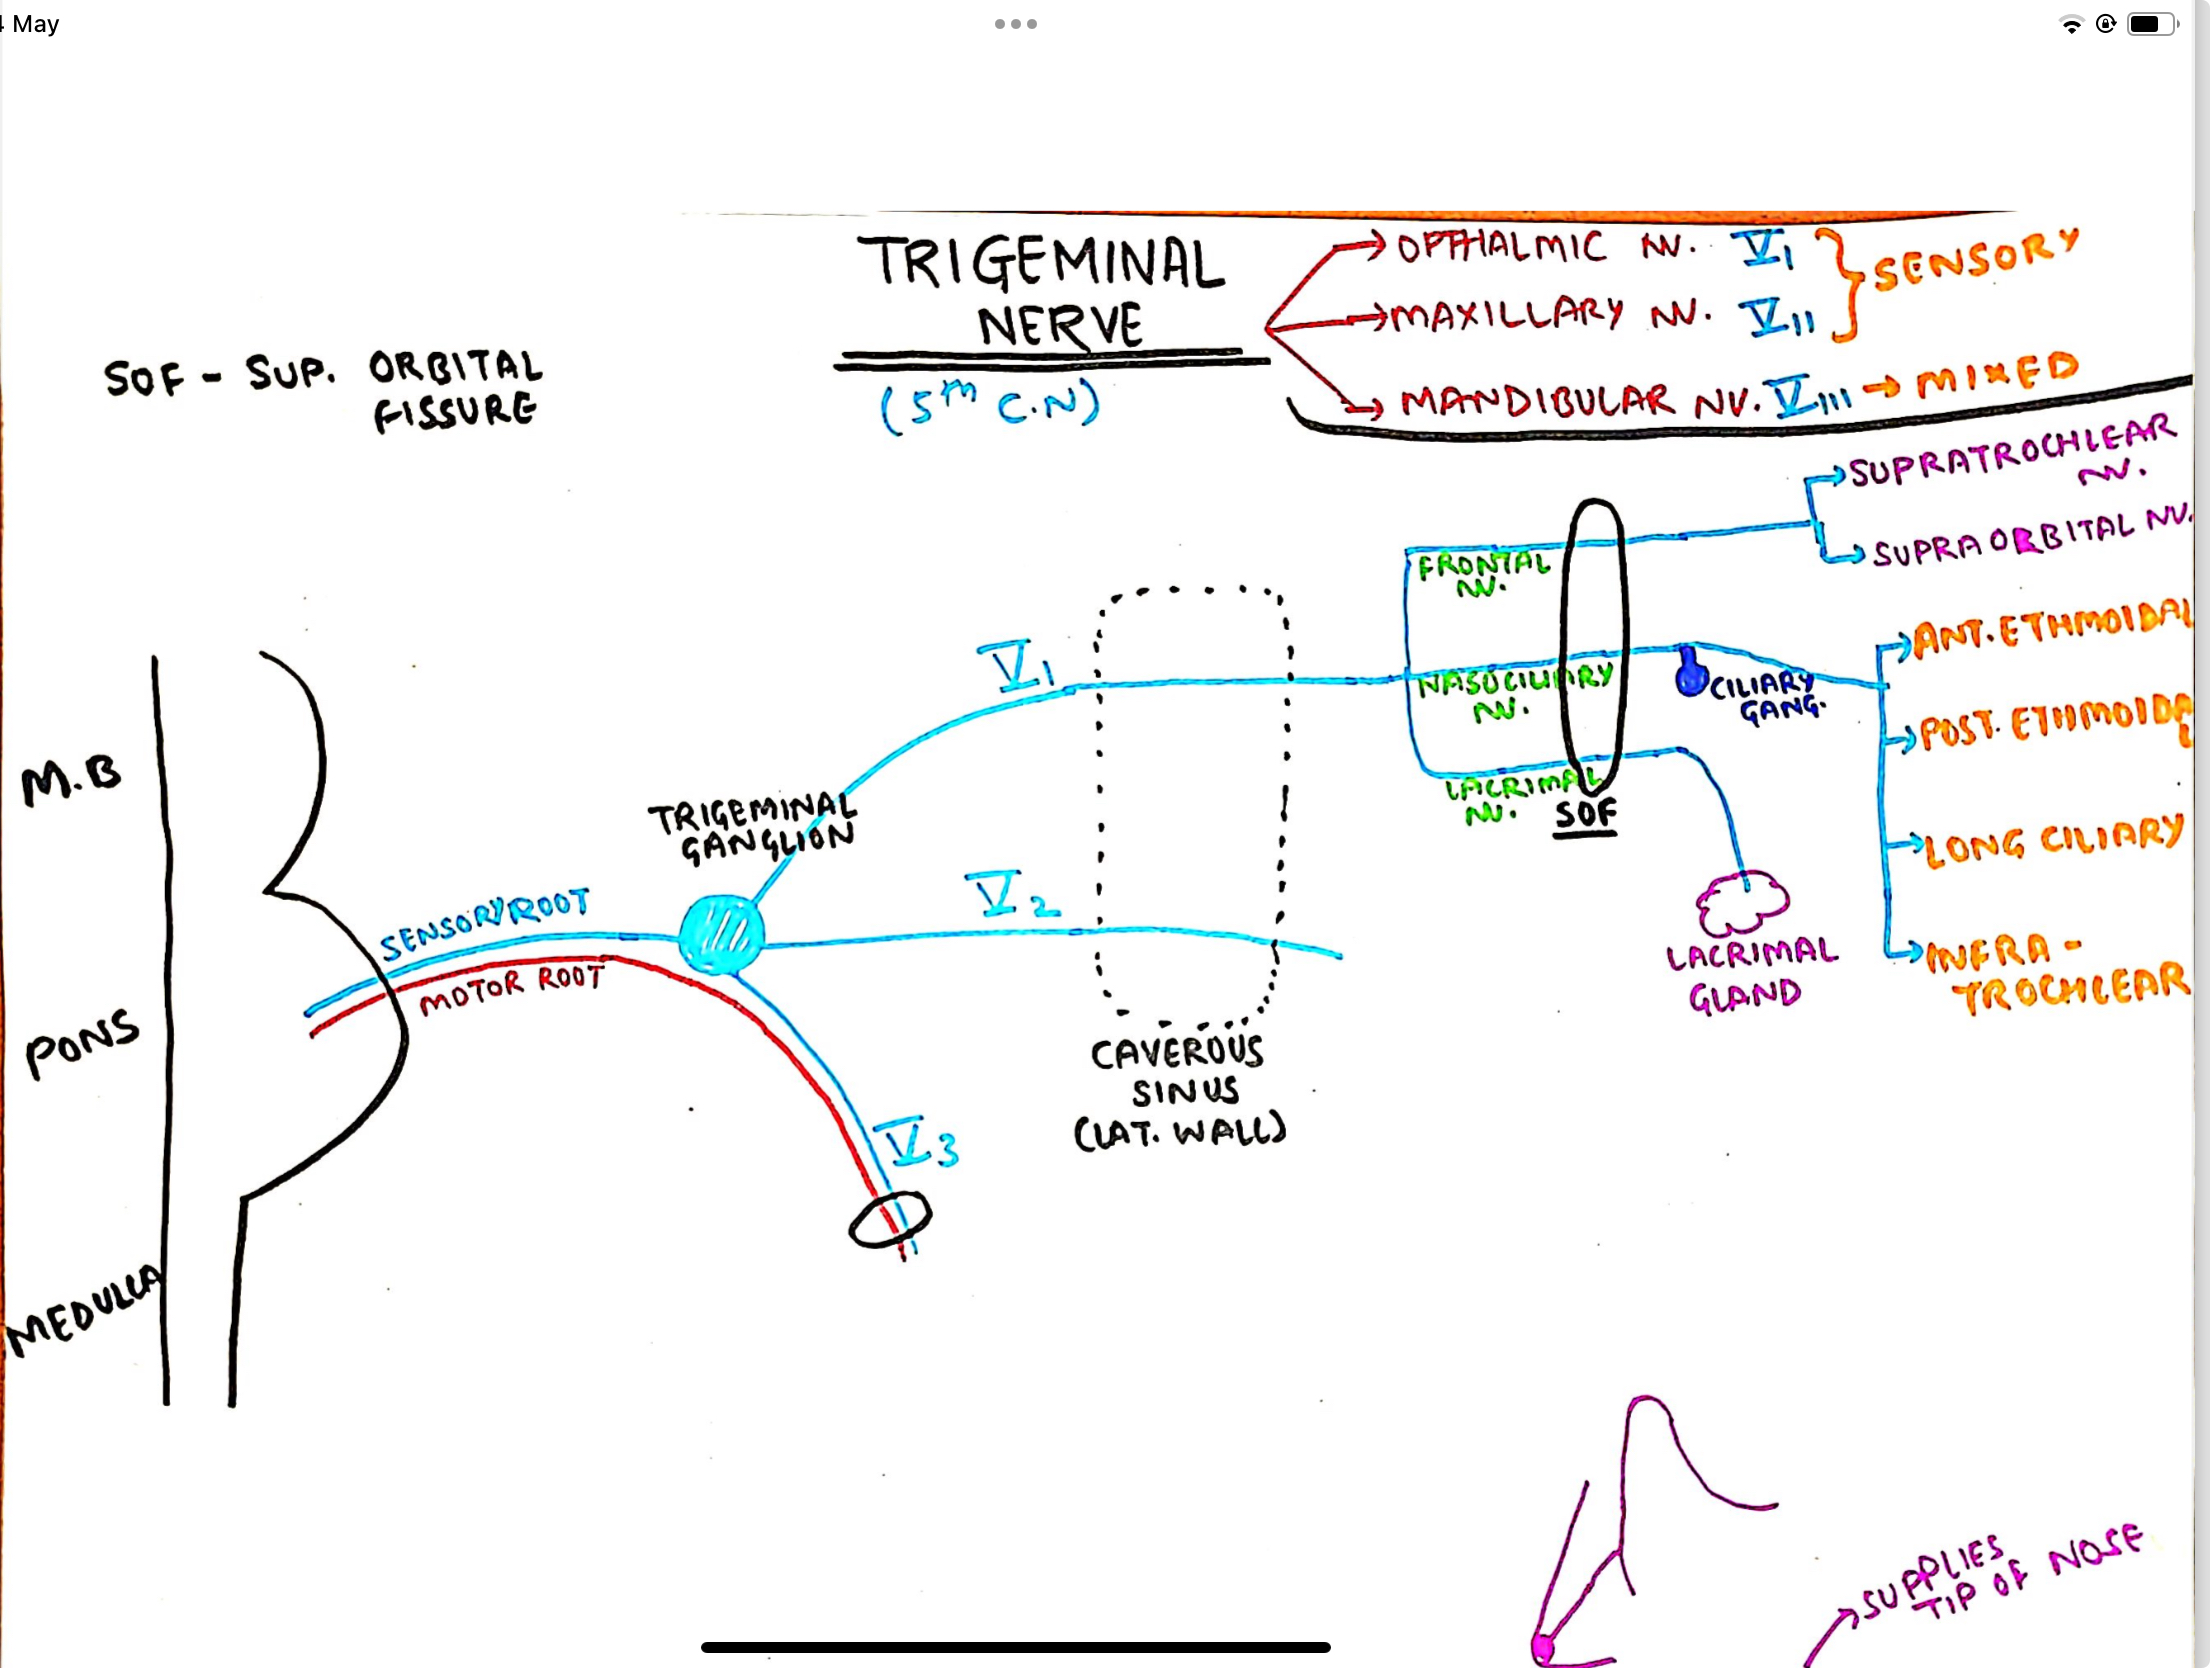 4 May
TRIGEMINAL
NERVE
(5th C.N)
OPTHALMIC NV. VI
MAXILLARY NV. VII
SENSORY
MANDIBULAR NV. VIII → MIXED
SOF - SUP. ORBITAL
FISSURE
SUPRATROCHLEAR
NV.
SUPRAORBITAL NV.
FRONTAL
NV.
NASOCILIARY
NV.
LACRIMAL
NV.
SOF
CILIARY
GANG.
ANT. ETHMOIDAL
POST. ETHMOIDAL
LONG CILIARY
INFRA-
TROCHLEAR
LACRIMAL
GLAND
V1
V2
V3
TRIGEMINAL
GANGLION
SENSORY ROOT
MOTOR ROOT
CAVEROUS
SINUS
(LAT. WALL)
M.B
PONS
MEDULLA
SUPPLIES
TIP OF NOSE